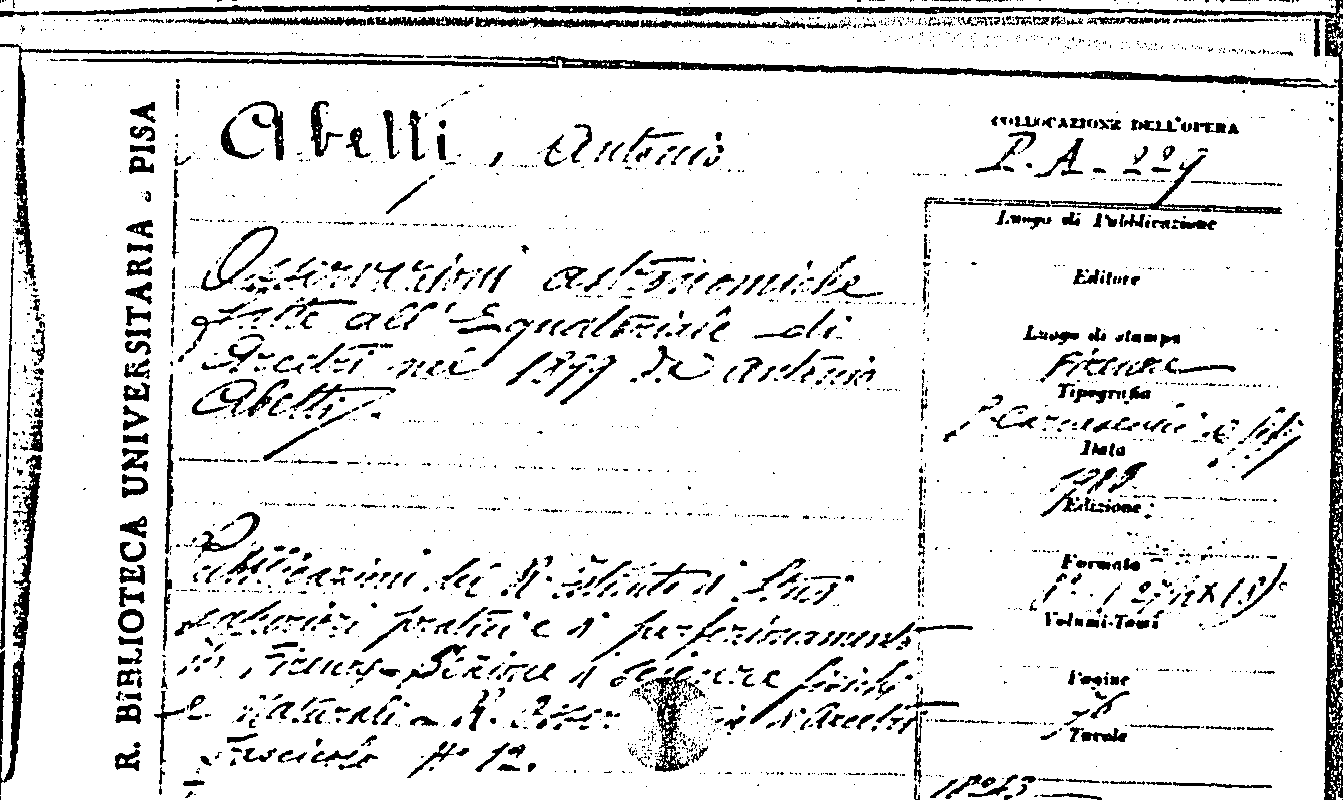 R. BIBLIOTECA UNIVERSITARIA - PISA
Abetti, Antonio
Osservazioni astronomiche
fatte all'Equatoriale di
Arcetri nel 1899 da Antonio
Abetti.
Pubblicazioni del R. Istituto di Studi
superiori pratici e di perfezionamento
in Firenze - Sezione di scienze fisiche
e naturali - R. di Arcetri
Fascicolo N° 12.
COLLOCAZIONE DELL'OPERA
P. A. - 229
Luogo di Pubblicazione
Editore
Luogo di stampa
Firenze
Tipografia
Carnesecchi e figli
Data
Edizione
Formato
8°
Volumi-Tomi
Pagine
Tavole